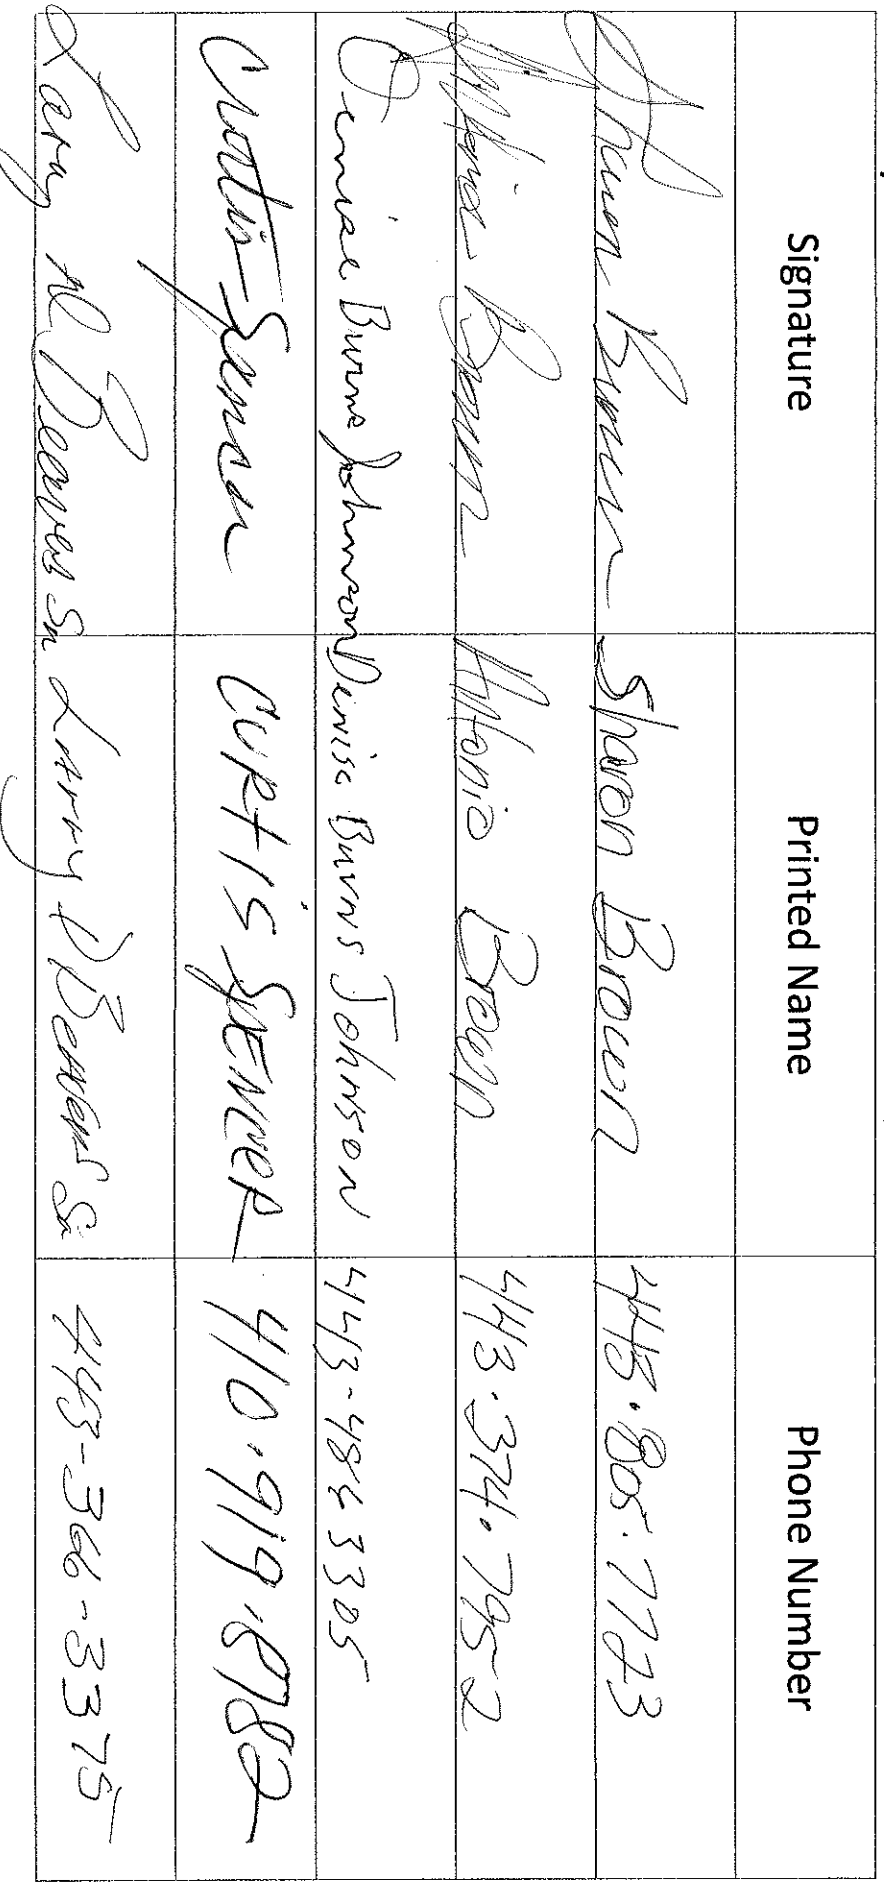 Signature Printed Name Phone Number
Sharon Brown Sharon Brown 443.805.7773
Brown Brown 443.374.7952
Denise Burns Johnson Denise Burns Johnson 443-486 3305
Curtis Spencer CURtis SpENCER 410.919.8982
Larry D Beavers Sr Larry D Beavers Sr 443-366-3375